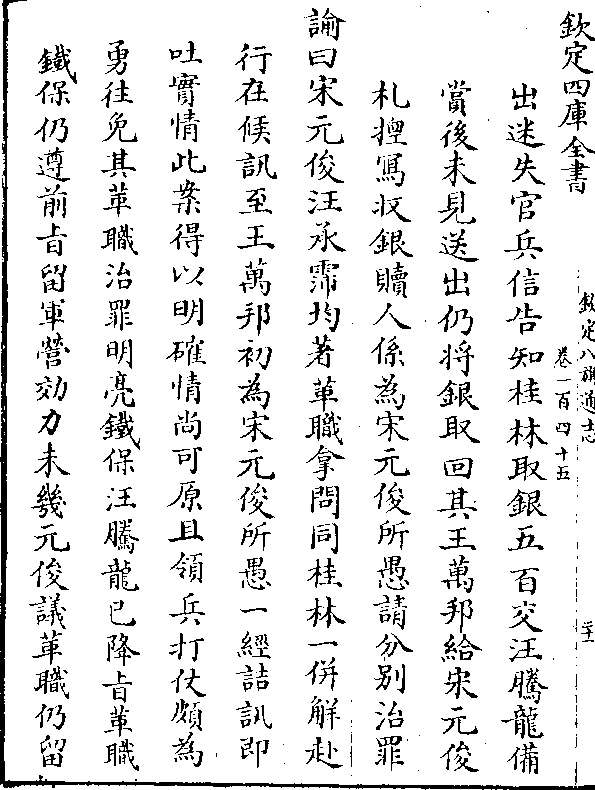 欽定四庫全書
欽定八旗通志
卷一百四十五
出迷失官兵信告知桂林取銀五百交汪騰龍備
賞後未見送出仍將銀取回其王萬邦給宋元俊
札揑寫收銀贖人係為宋元俊所愚請分别治罪
諭曰宋元俊汪承霈均著革職拿問同桂林一併解赴
行在候訊至王萬邦初為宋元俊所愚一經詰訊即
吐實情此案得以明確情尚可原且領兵打仗頗為
勇往免其革職治罪明亮鐵保汪騰龍已降㫖革職
鐵保仍遵前㫖留軍營効力未幾元俊議革職仍留